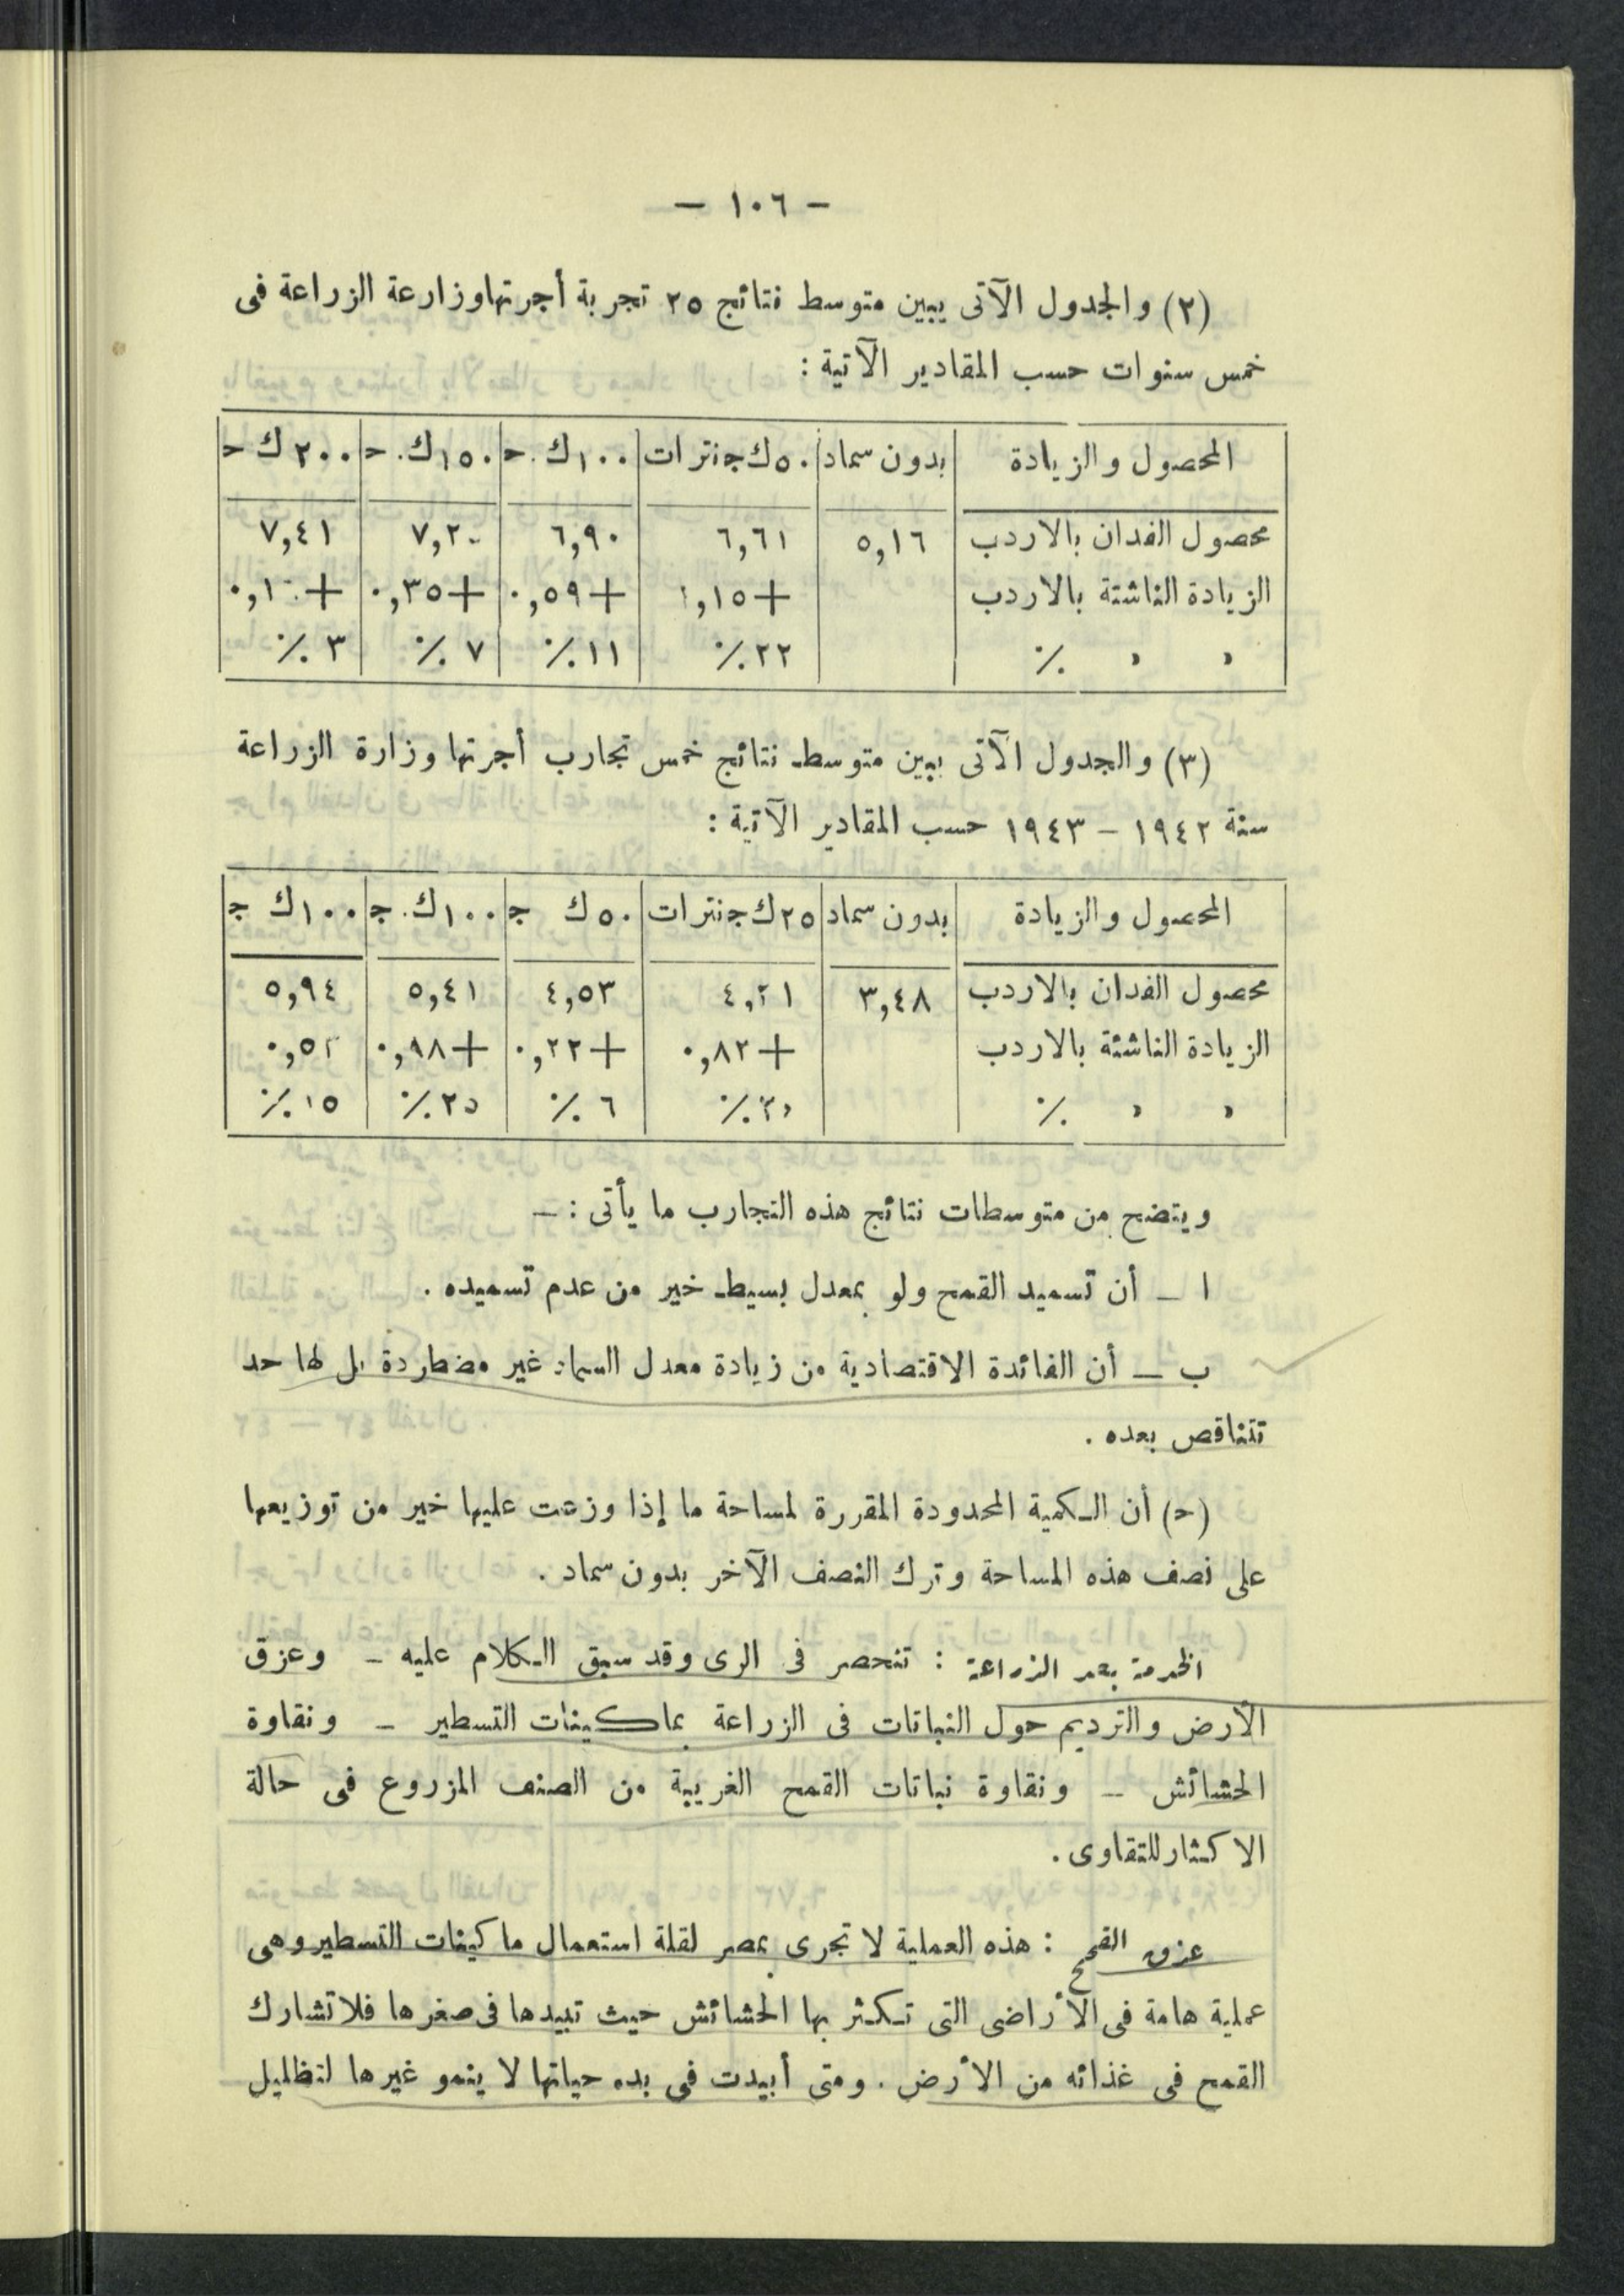 — ١٠٦ —
(٢) والجدول الآتى يبين متوسط نتائج ٢٥ تجربة أجرتها وزارعة الزراعة فى
خمس سنوات حسب المقادير الآتية :
المحصول والزيادة | بدون سماد | ٥٠ك ج نترات | ١٠٠ك . ح | ١٥٠ك . ح | ٢٠٠ك ح
محصول الفدان بالاردب | ٥,١٦ | ٦,٦١ | ٦,٩٠ | ٧,٢٠ | ٧,٤١
الزيادة الناشئة بالاردب | | +١,١٥ | +٠,٥٩ | +٠,٣٥ |
» » ٪ | | ٢٢٪ | ١١٪ | ٧٪ | ٣٪
(٣) والجدول الآتى يبين متوسط نتائج خمس تجارب أجرتها وزارة الزراعة
سنة ١٩٤٢ – ١٩٤٣ حسب المقادير الآتية :
المحصول والزيادة | بدون سماد | ٢٥ك ج نترات | ٥٠ك ج | ١٠٠ك . ج | ١٠٠ك ج
محصول الفدان بالاردب | ٣,٤٨ | | ٤,٥٣ | ٥,٤١ | ٥,٩٤
الزيادة الناشئة بالاردب | | +٠,٨٢ | +٠,٢٢ | +٠,٩٨ |
» » ٪ | | | ٦٪ | ٢٥٪ | ١٥٪
ويتضح من متوسطات نتائج هذه التجارب ما يأتى : –
ا – أن تسميد القمح ولو بمعدل بسيط خير من عدم تسميده .
ب – أن الفائدة الاقتصادية من زيادة معدل السماد غير مضطاردة بل لها حد
تتناقص بعده .
(ح) أن الكمية المحدودة المقررة لمساحة ما إذا وزعت عليها خير من توزيعها
على نصف هذه المساحة وترك النصف الآخر بدون سماد .
الخدمة بعد الزراعة : تنحصر فى الرى وقد سبق الكلام عليه – وعزق
الأرض والترديم حول النباتات فى الزراعة بماكينات التسطير – ونقاوة
الحشائش – ونقاوة نباتات القمح الغريبة من الصنف المزروع فى حالة
الاكثار للتقاوى .
عزق القمح : هذه العملية لا تجرى بمصر لقلة استعمال ماكينات التسطير وهى
عملية هامة فى الأراضى التى تكثر بها الحشائش حيث تبيدها فى صغرها فلا تشارك
القمح فى غذائه من الأرض . ومتى أبيدت فى بدء حياتها لا ينمو غيرها لتظليل